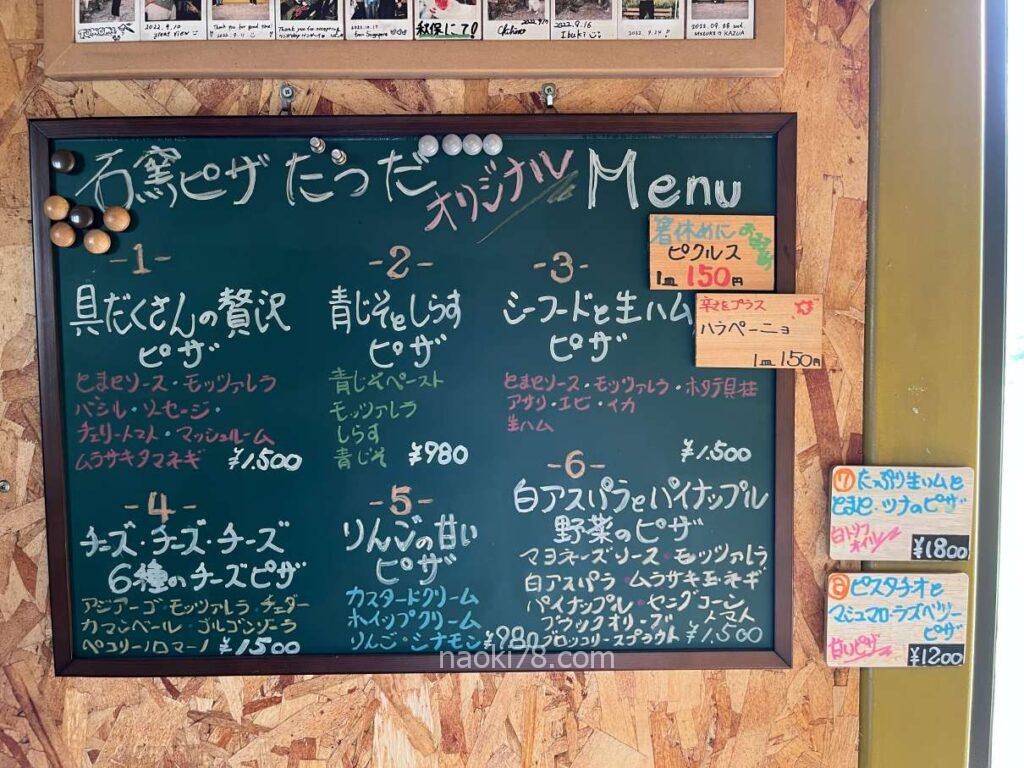 2022.9.10
great view
Thank you for good time!
2022.9.11
from Singapore
秋保にて!
2022.9.16
Ibuki
2022.9.24
2022.09.28 wed.
石窯ピザ だっだ オリジナル Menu
箸休めに
ピクルス
1皿 150円
辛さをプラス
ハラペーニョ
1皿 150円
-1-
具だくさんの贅沢
ピザ
とまとソース・モッツァレラ
バジル・ソーセージ・
チェリートマト・マッシュルーム
ムラサキタマネギ ¥1.500
-2-
青じそとしらす
ピザ
青じそペースト
モッツァレラ
しらす
青じそ ¥980
-3-
シーフードと生ハム
ピザ
とまとソース・モッツァレラ・ホタテ貝柱
アサリ・エビ・イカ
生ハム
¥1.500
-4-
チーズ・チーズ・チーズ
6種のチーズピザ
アジアーゴ・モッツァレラ・チェダー
カマンベール・ゴルゴンゾーラ
ペコリーノロマーノ ¥1.500
-5-
りんごの甘い
ピザ
カスタードクリーム
ホイップクリーム
りんご・シナモン ¥980
-6-
白アスパラとパイナップル
野菜のピザ
マヨネーズソース・モッツァレラ
白アスパラ・ムラサキ玉ネギ
パイナップル・ヤングコーン
ブラックオリーブ トマト
ブロッコリースプラウト ¥1.500
⑦たっぷり生ハムと
とまと・ツナのピザ
白トリフオイル
¥1800
⑧ピスタチオと
マシュマロ・ラズベリー
ピザ
甘いピザ
¥1200
naoki78.com